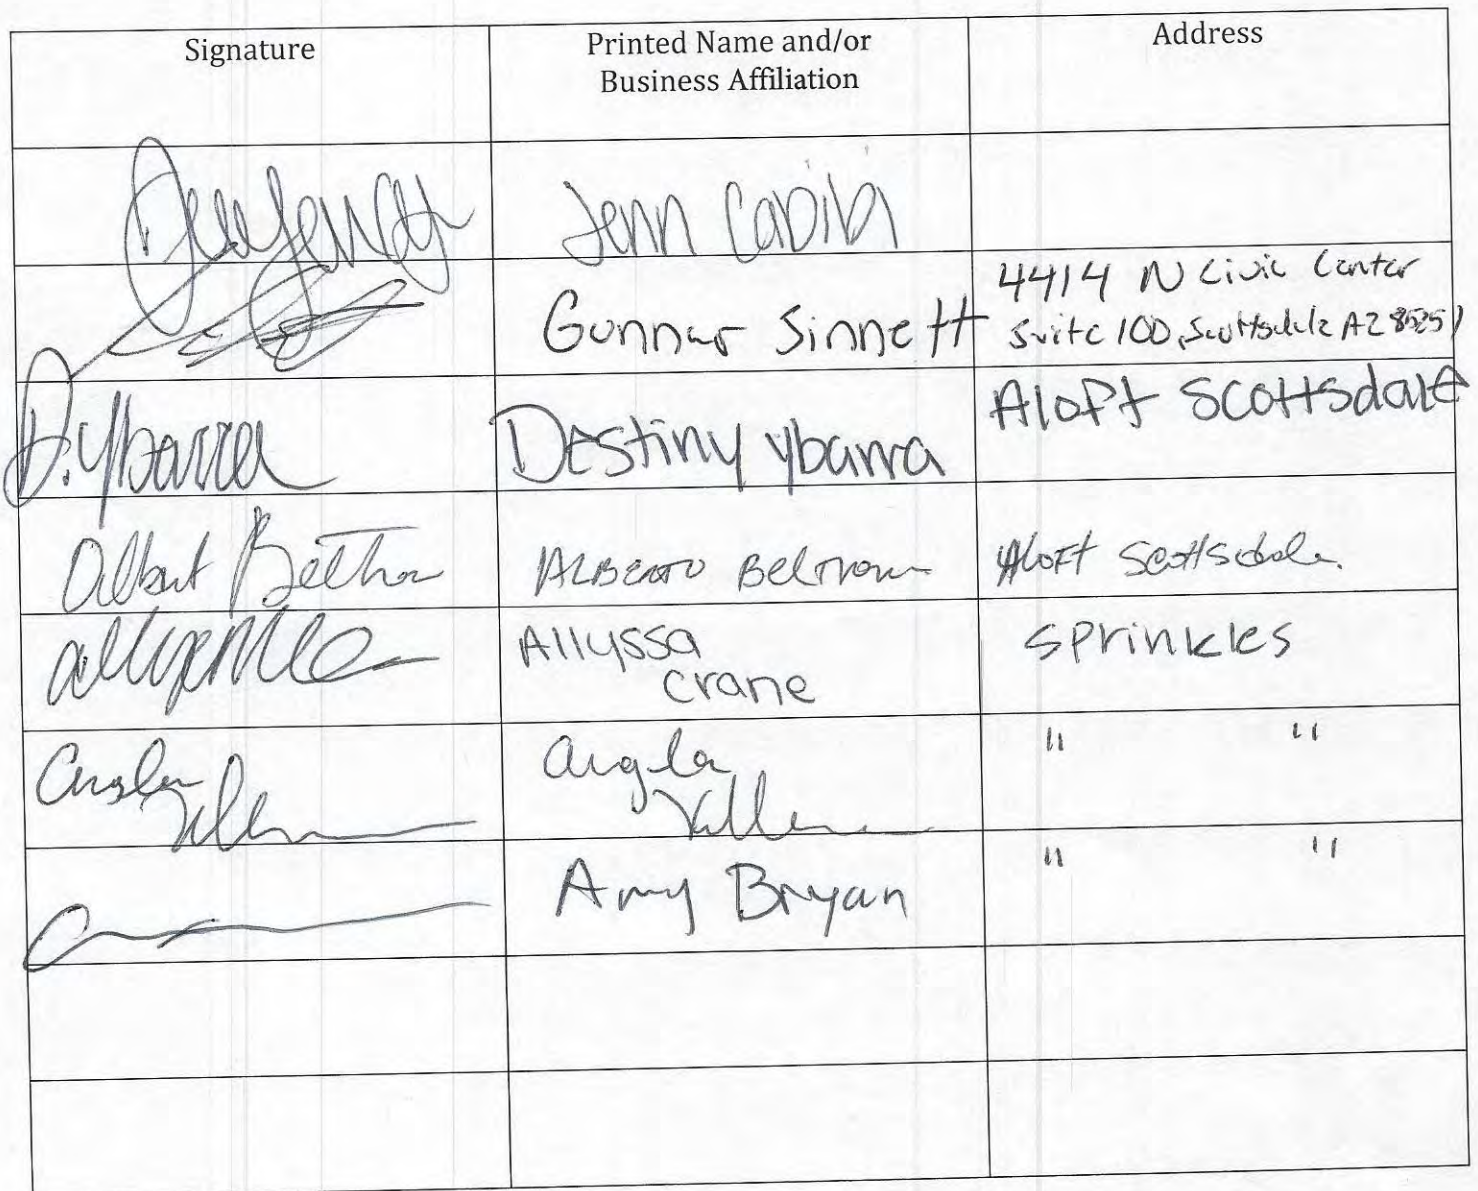 Signature
Printed Name and/or
Business Affiliation
Address
Jenn
Gunnar Sinnett
4414 N Civic Center
Suite 100, Scottsdale AZ 85251
D. Ybarra
Destiny Ybarra
Aloft Scottsdale
Albert
Alberto Beltran
Aloft Scottsdale.
Allyssa
crane
sprinkles
" "
Amy Bryan
" "